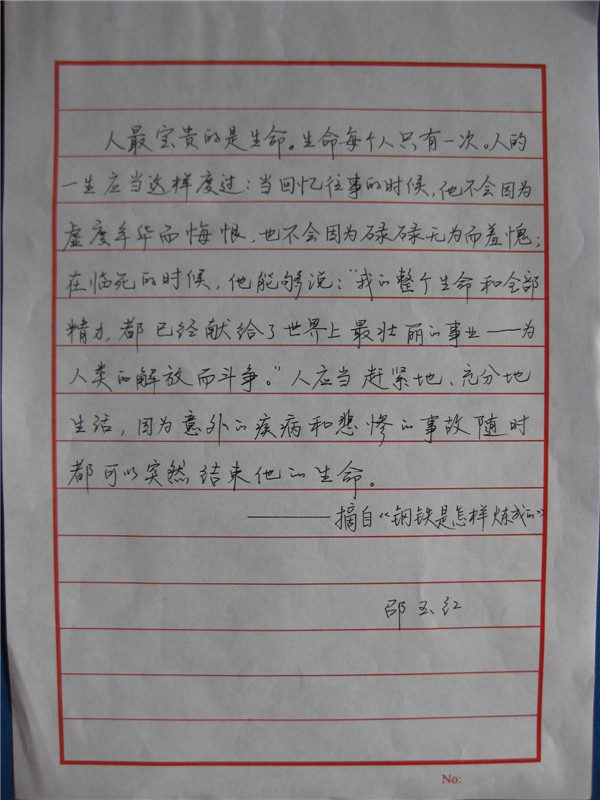 人最宝贵的是生命。生命每个人只有一次。人的
一生应当这样度过：当回忆往事的时候，他不会因为
虚度年华而悔恨，也不会因为碌碌无为而羞愧；
在临死的时候，他能够说：“我的整个生命和全部
精力，都已经献给了世界上最壮丽的事业——为
人类的解放而斗争。”人应当赶紧地、充分地
生活，因为意外的疾病和悲惨的事故随时
都可以突然结束他的生命。
——摘自《钢铁是怎样炼成的》
邵玉红
No: